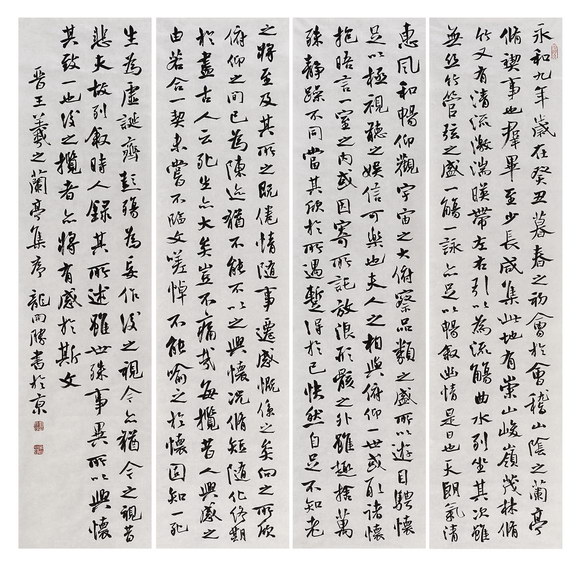 永和九年歲在癸丑暮春之初會於會稽山陰之蘭亭
脩禊事也羣畢至少長咸集此地有崇山峻嶺茂林脩
竹又有清流激湍暎帶左右引以為流觴曲水列坐其次雖
無丝竹管弦之盛一觴一詠亦足以暢敘幽情是日也天朗氣清
惠風和暢仰觀宇宙之大俯察品類之盛所以遊目騁懷
足以極視聽之娛信可樂也夫人之相與俯仰一世或取諸懷
抱晤言一室之內或因寄所託放浪形骸之外雖趣捨萬
殊靜躁不同當其欣於所遇暫得於己快然自足不知老
之將至及其所之既倦情隨事遷感慨係之矣向之所欣
俯仰之間已為陳迹猶不能不以之興懷況脩短隨化終期
於盡古人云死生亦大矣豈不痛哉每攬昔人興感之
由若合一契未嘗不臨文嗟悼不能喻之於懷固知一死
生為虛誕齊彭殤為妄作後之視今亦猶今之視昔
悲夫故列敘時人錄其所述雖世殊事異所以興懷
其致也後之攬者亦將有感於斯文
晉王羲之蘭亭集序 龍開勝書於京